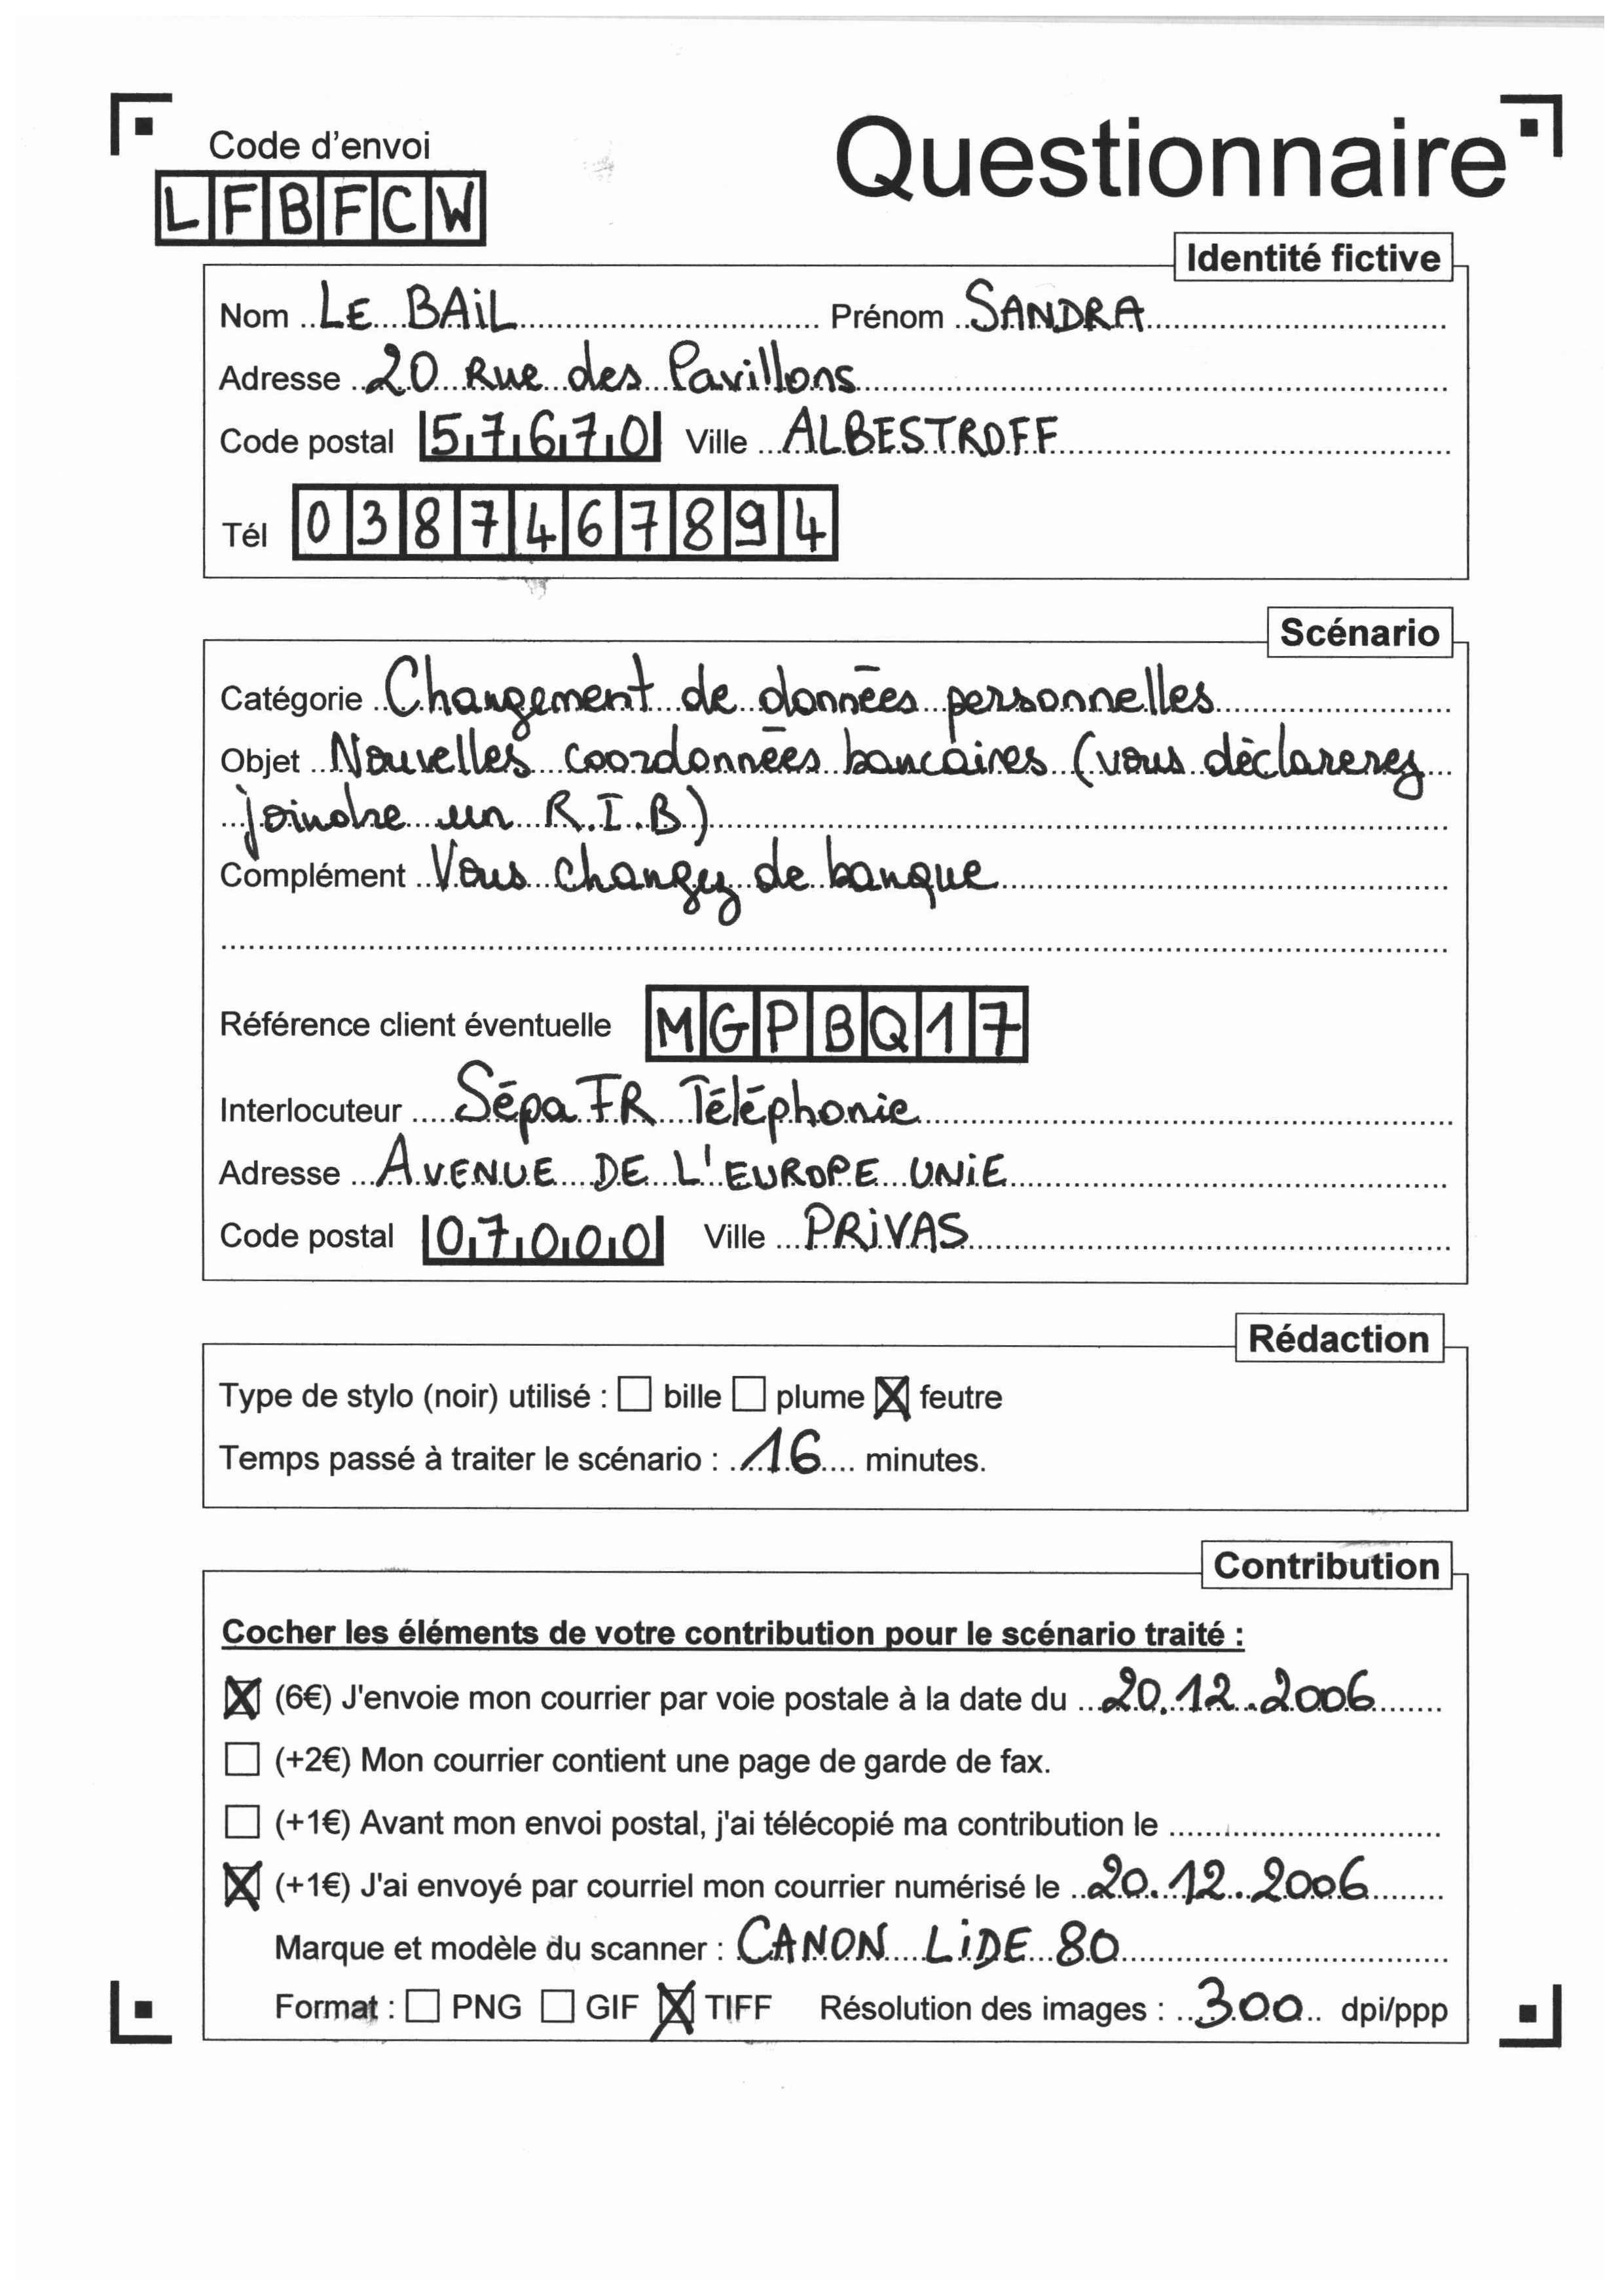 Code d'envoi
Questionnaire
LFBFCW
Identité fictive
Nom LE BAIL Prénom SANDRA
Adresse 20 Rue des Pavillons
Code postal 57670 Ville ALBESTROFF
Tél 0387467894
Scénario
Catégorie Changement de données personnelles
Objet Nouvelles coordonnées bancaires (vous déclarerez
joindre un R.I.B)
Complément Vous changez de banque
Référence client éventuelle MGPBQ17
Interlocuteur Sépa FR Téléphonie
Adresse AVENUE DE L'EUROPE UNIE
Code postal 07000 Ville PRIVAS
Rédaction
Type de stylo (noir) utilisé : ☐ bille ☐ plume ☒ feutre
Temps passé à traiter le scénario : 16 minutes.
Contribution
Cocher les éléments de votre contribution pour le scénario traité :
☒ (6€) J'envoie mon courrier par voie postale à la date du 20.12.2006
☐ (+2€) Mon courrier contient une page de garde de fax.
☐ (+1€) Avant mon envoi postal, j'ai télécopié ma contribution le
☒ (+1€) J'ai envoyé par courriel mon courrier numérisé le 20.12.2006
Marque et modèle du scanner : CANON LiDE 80
Format : ☐ PNG ☐ GIF ☒ TIFF Résolution des images : 300 dpi/ppp